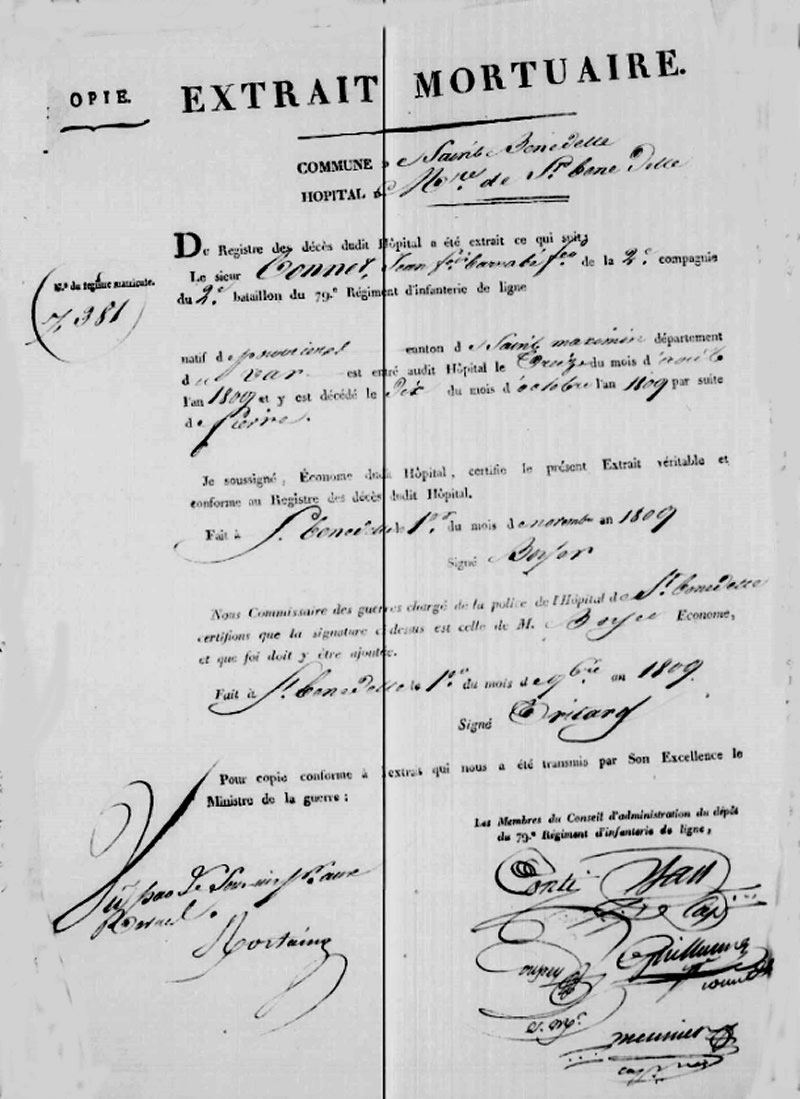 OPIE. EXTRAIT MORTUAIRE.
COMMUNE Sainte Benedette
HOPITAL de St bene dette
De Registre des décès dudit Hôpital a été extrait ce qui suit;
N.º du registre matricule.
7381
Le sieur Connet, Jean barnabé de la 2.e compagnie
du 2.e bataillon du 79.e Régiment d'infanterie de ligne
natif de canton de Saint maximin département
d var est entré audit Hôpital le Treize du mois d'août
l'an 1809 et y est décédé le Dix du mois d'octobre l'an 1809 par suite
de fievre.
Je soussigné, Économe dudit Hôpital, certifie le présent Extrait véritable et
conforme au Registre des décès dudit Hôpital.
Fait à St benedette le 1er du mois de novembre an 1809
Signé Boyer
Nous Commissaire des guerres chargé de la police de l'Hôpital de St benedette
certifions que la signature ci-dessus est celle de M. Boyer Econome,
et que foi doit y être ajoutée.
Fait à St benedette le 1er du mois de 9bre an 1809.
Signé
Pour copie conforme à l'extrait qui nous a été transmis par Son Excellence le
Ministre de la guerre :
Les Membres du Conseil d'administration du dépôt
du 79.e Régiment d'infanterie de ligne,
Vu par
Conti
Cap
Guillaume
meunier